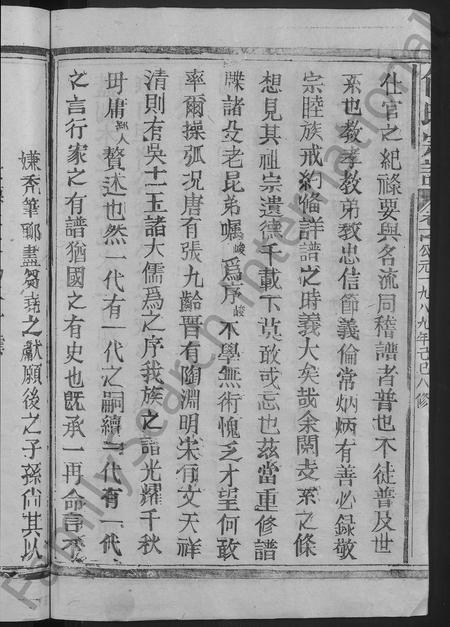 氏宗譜 公元一九八九年己巳八修
仕官之紀祿要與名流同稽譜者普也不徒普及世
系也教孝教弟教忠信節義倫常炳炳有善必錄敬
宗睦族戒約條詳譜之時義大矣哉余閱支系之條
想見其祖宗遺德千載下莫敢或忘也茲當重修譜
牒諸殳老昆弟囑峻爲序峻不學無術愧乏才望何敢
率爾操弧况唐有張九齡晋有陶淵明宋有文天祥
清則有吳十一玉諸大儒爲之序我族之譜光耀千秋
毋庸無人贅述也然一代有一代之嗣續一代有一代
之言行家之有譜猶國之有史也旣承一再命言不
嫌秃筆聊盡芻蕘之獻願後之子孫尙其以
FamilySearch International